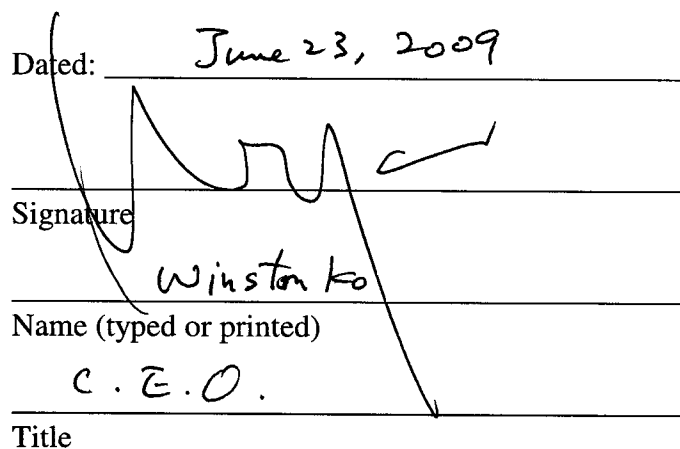 Dated: June 23, 2009
Signature
Winston Ko
Name (typed or printed)
C.E.O.
Title